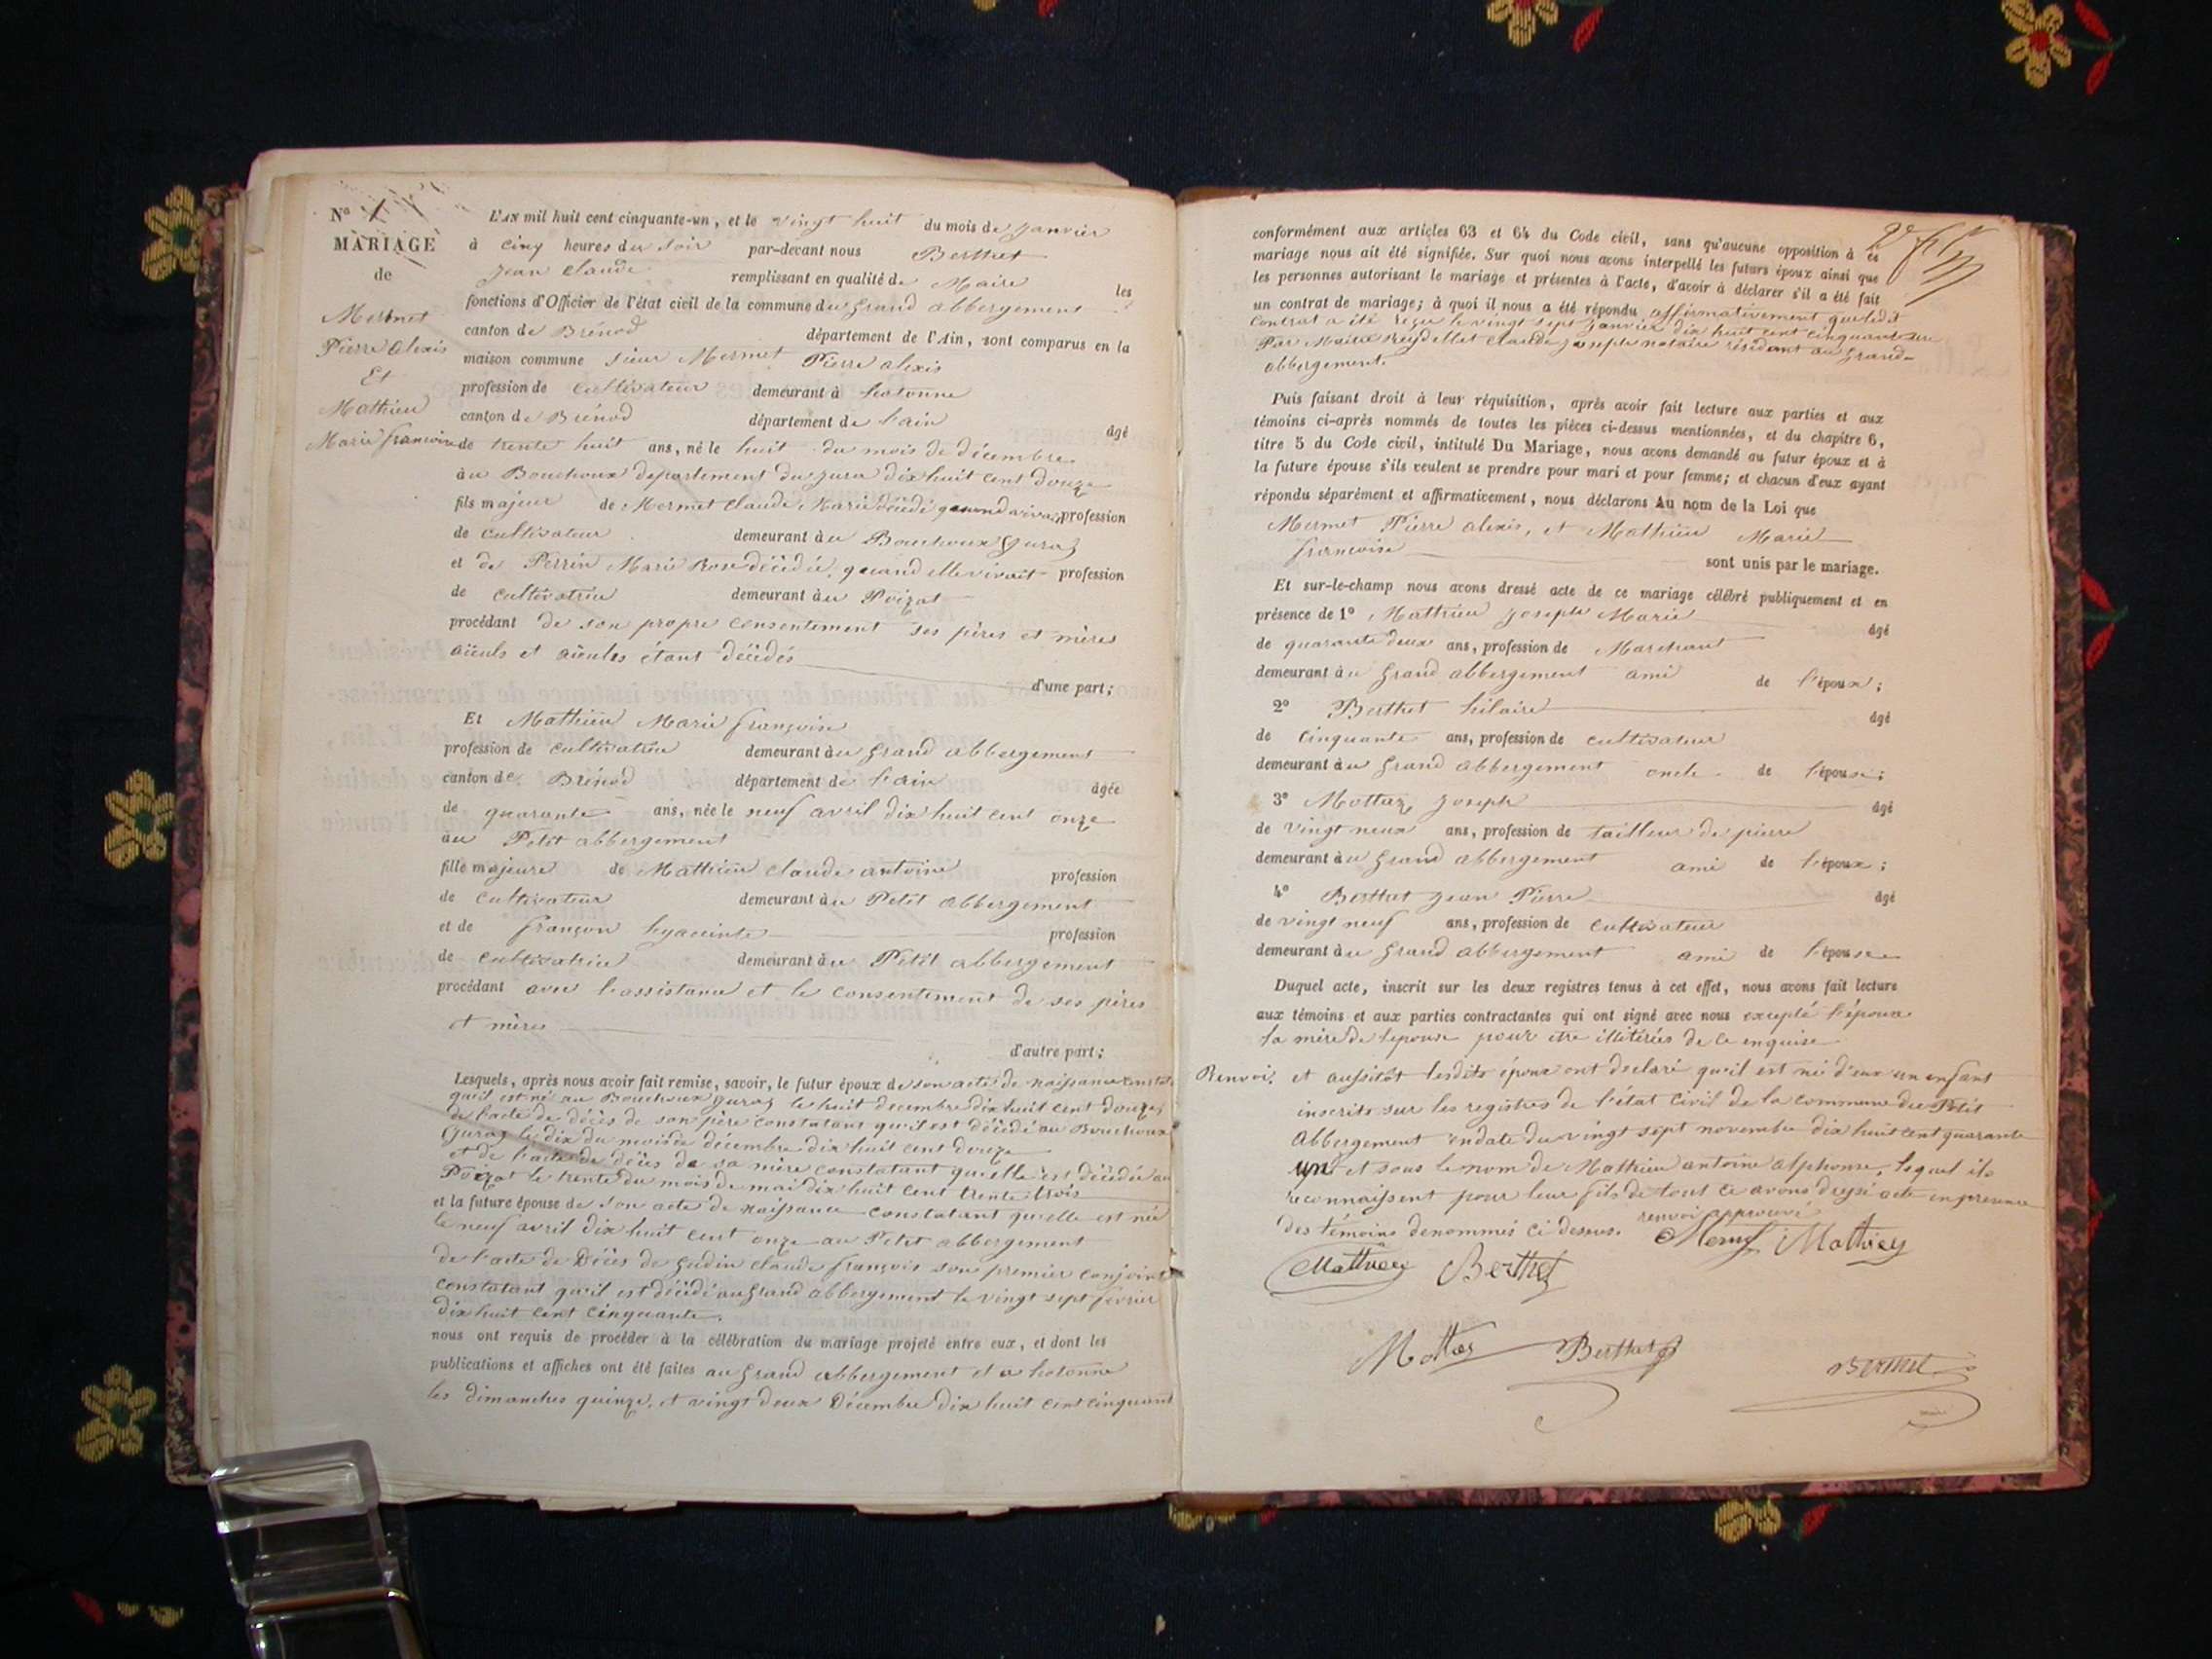 No 1
MARIAGE
de
Mermet
Pierre alexis
Et
Mathieu
Marie francoise
L'AN mil huit cent cinquante-un, et le vingt huit du mois de janvier
à cinq heures du soir par-devant nous Berthet
jean claude remplissant en qualité de Maire les
fonctions d'Officier de l'état civil de la commune du grand abbergement
canton de Brénod département de l'Ain, sont comparus en la
maison commune sieur Mermet Pierre alexis
profession de cultivateur demeurant à hotonne
canton de Brénod département de l'ain âgé
de trente huit ans, né le huit du mois de décembre
au Bouchoux département du jura dix huit cent douze
fils majeur de Mermet claude Marie décédé quand vivait profession
de cultivateur demeurant au Bouchoux (jura)
et de Perrin Marie Rose décédée, quand elle vivait profession
de cultivatrice demeurant au Poizat
procédant de son propre consentement ses pères et mères
aïeuls et aïeules étant décédés
d'une part;
Et Mathieu Marie françoise
profession de cultivatrice demeurant au grand abbergement
canton de Brénod département de l'ain âgée
de quarante ans, née le neuf avril dix huit cent onze
au Petit abbergement
fille majeure de Mathieu claude antoine profession
de cultivateur demeurant au Petit abbergement
et de françon hyacinte profession
de cultivatrice demeurant au Petit abbergement
procédant avec l'assistance et le consentement de ses pères
et mères
d'autre part;
Lesquels, après nous avoir fait remise, savoir, le futur époux de son acte de naissance constatant
qu'il est né au Bouchoux jura le huit decembre dix huit cent douze,
de l'acte de décès de son père constatant qu'il est décédé au Bouchoux
(jura) le dix du mois de décembre dix huit cent douze
et de l'acte de décès de sa mère constatant quelle est décédée au
Poizat le trente du mois de mai dix huit cent trente trois
et la future épouse de son acte de naissance constatant quelle est née
le neuf avril dix huit cent onze au Petit abbergement
de l'acte de Décès de gudin claude françois son premier conjoint
constatant qu'il est décédé au grand abbergement le vingt sept février
dix huit cent cinquante.
nous ont requis de procéder à la célébration du mariage projeté entre eux, et dont les
publications et affiches ont été faites au grand abbergement et a hotonne
les dimanches quinze, et vingt deux Décembre dix huit cent cinquante
conformément aux articles 63 et 64 du Code civil, sans qu'aucune opposition à ce
mariage nous ait été signifiée. Sur quoi nous avons interpellé les futurs époux ainsi que
les personnes autorisant le mariage et présentes à l'acte, d'avoir à déclarer s'il a été fait
un contrat de mariage; à quoi il nous a été répondu affirmativement que ledit
contrat a été reçu le vingt sept janvier dix huit cent cinquante un
Par Maitre reydellet claude joseph notaire résidant au grand-
abbergement.
Puis faisant droit à leur réquisition, après avoir fait lecture aux parties et aux
témoins ci-après nommés de toutes les pièces ci-dessus mentionnées, et du chapitre 6,
titre 5 du Code civil, intitulé Du Mariage, nous avons demandé au futur époux et à
la future épouse s'ils veulent se prendre pour mari et pour femme; et chacun d'eux ayant
répondu séparément et affirmativement, nous déclarons Au nom de la Loi que
Mermet Pierre alexis, et Mathieu Marie
francoise sont unis par le mariage.
Et sur-le-champ nous avons dressé acte de ce mariage célébré publiquement et en
présence de 1° Mathieu joseph Marie âgé
de quarante deux ans, profession de Marchant
demeurant au grand abbergement ami de l'époux;
2° Berthet hilaire âgé
de cinquante ans, profession de cultivateur
demeurant au grand abbergement oncle de l'épouse;
3° Mottaz joseph âgé
de vingt neux ans, profession de tailleur de pierre
demeurant au grand abbergement ami de l'époux;
4° Berthet jean Pierre âgé
de vingt neuf ans, profession de cultivateur
demeurant au grand abbergement ami de l'épouse
Duquel acte, inscrit sur les deux registres tenus à cet effet, nous avons fait lecture
aux témoins et aux parties contractantes qui ont signé avec nous excepté l'épouse
la mère de lepouse pour être illitérées de ce enquise
Renvoi. et aussitôt lesdits époux ont declaré qu'il est né d'eux un enfant
inscrits sur les registres de l'état civil de la commune du Petit
Abbergement en date du vingt sept novembre dix huit cent quarante
un et sous le nom de Mathieu antoine alphonse, lequel ils
reconnaissent pour leur fils de tout ce avons dressé acte en presence
des témoins denommés ci dessus. renvoi approuvé
Mermet Mathieu
Mathieu Berthet
Mottaz Berthet Berthet